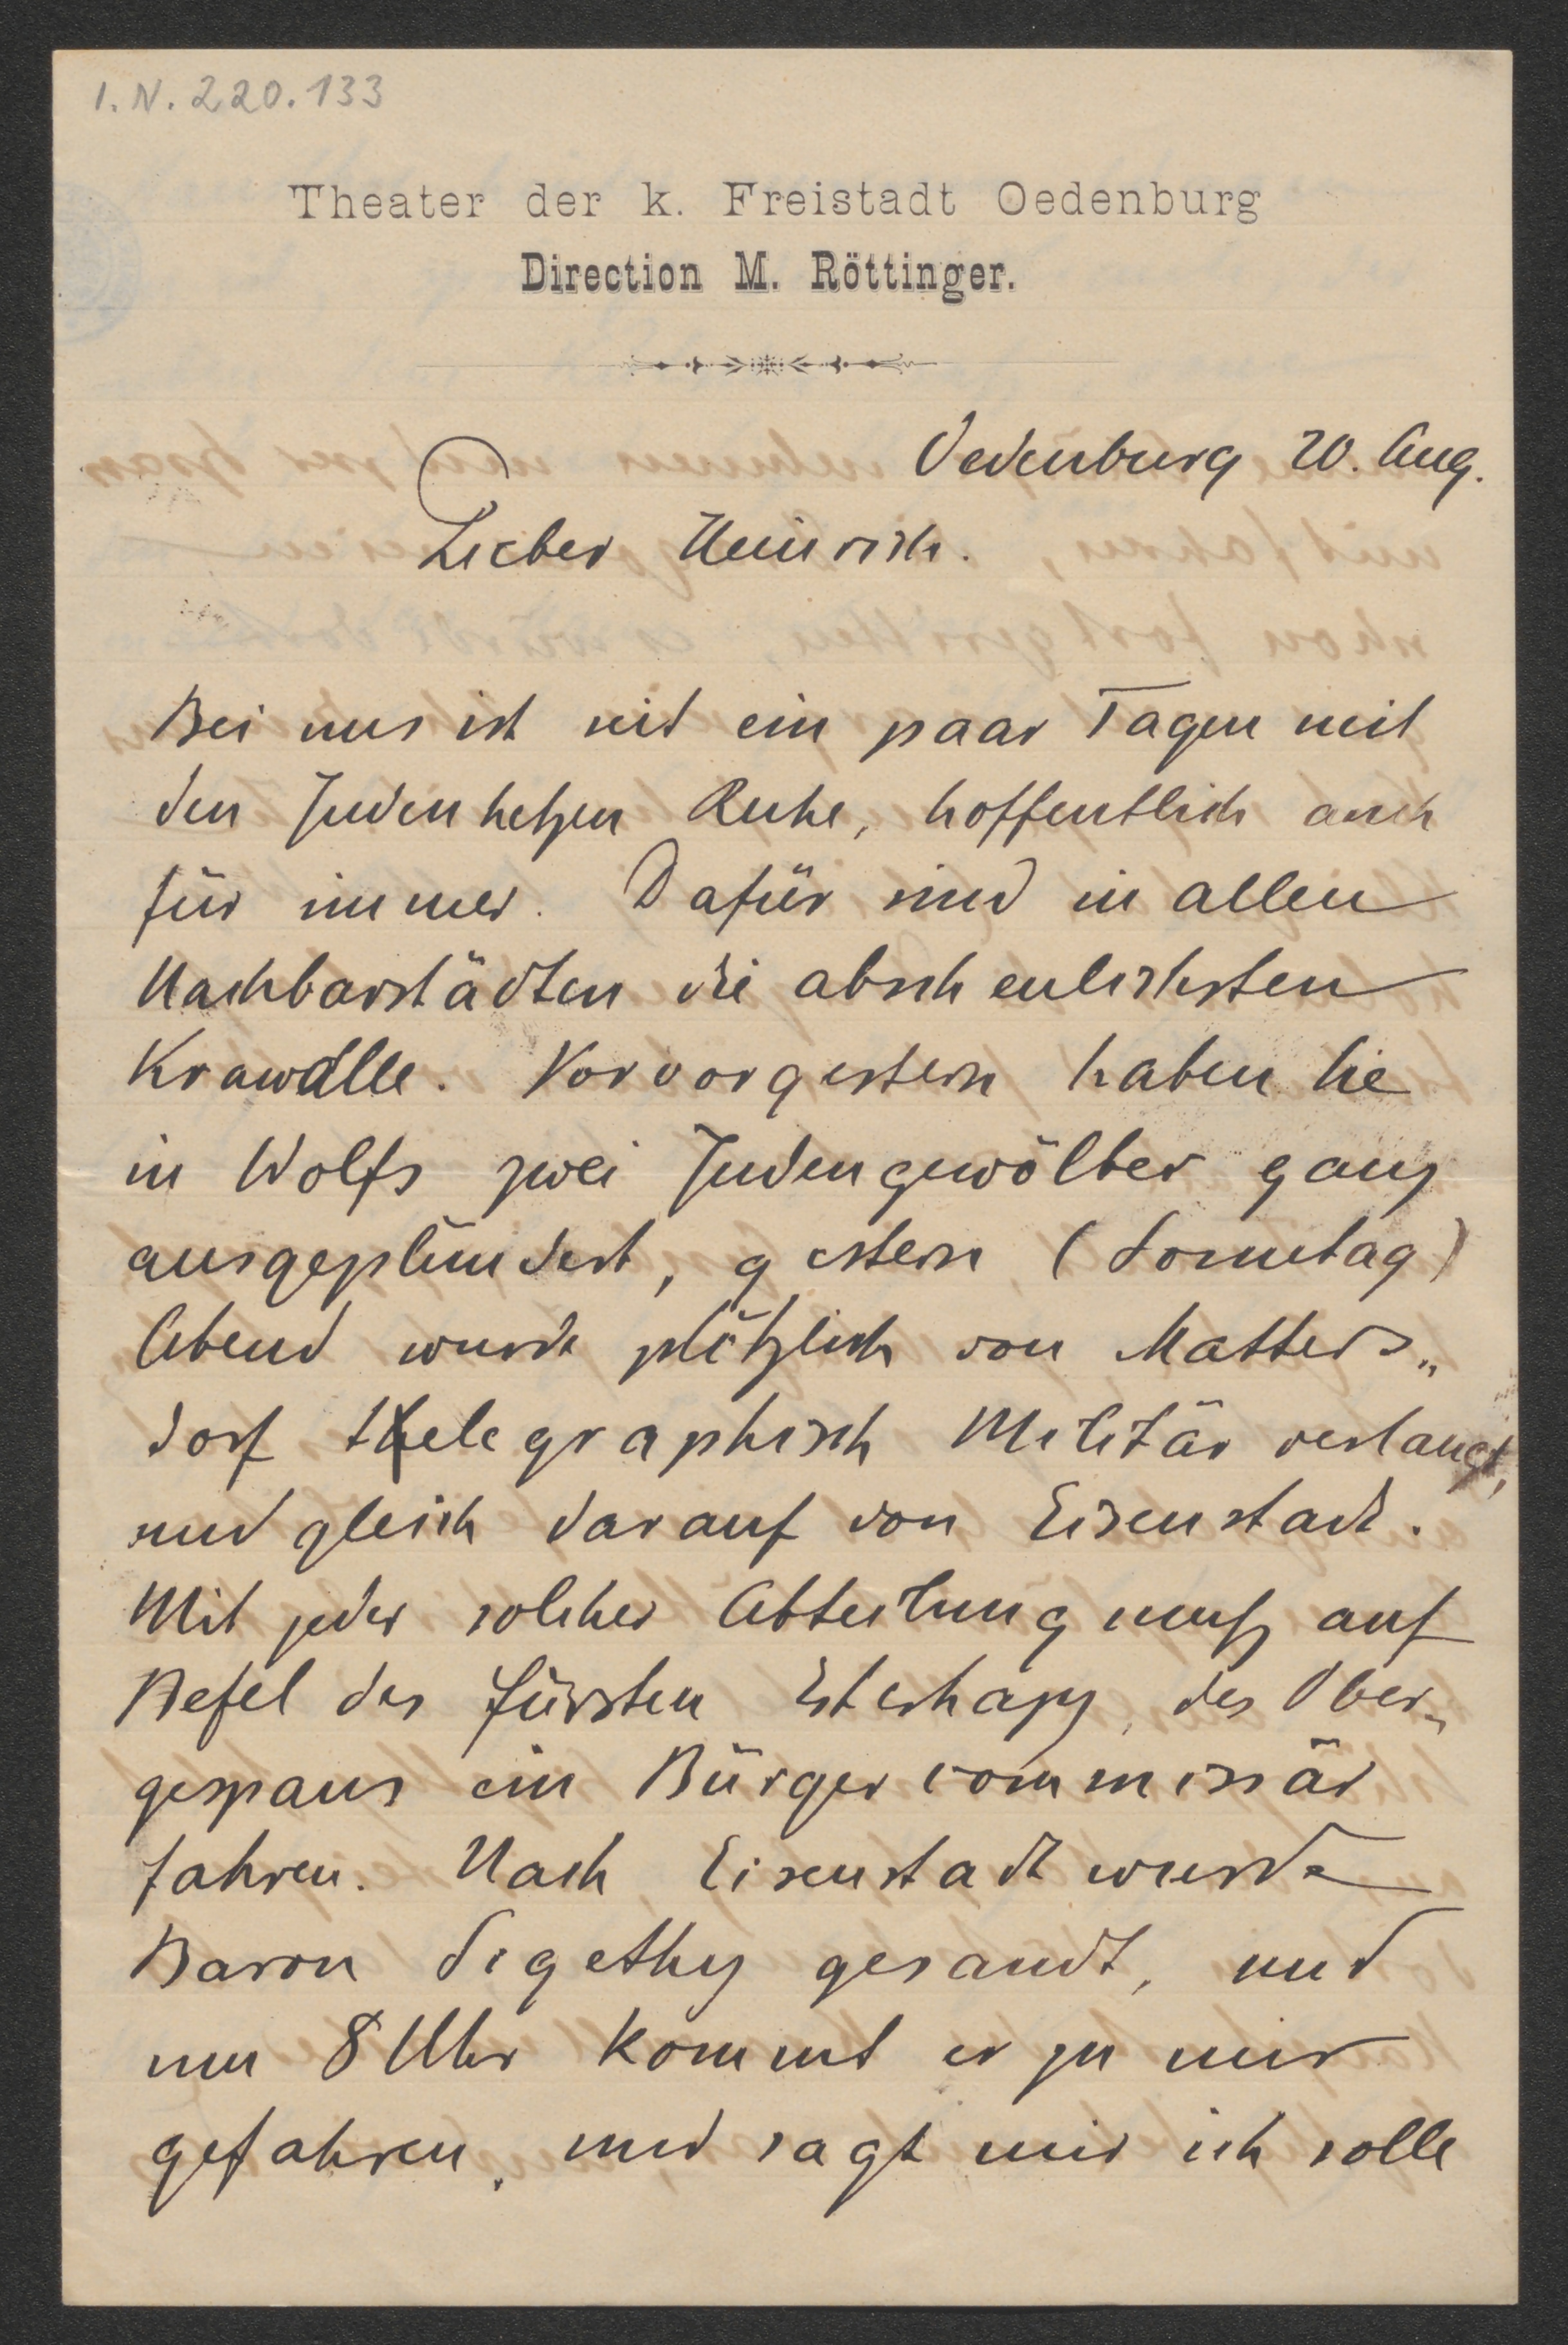 I.N. 220.133
Theater der k. Freistadt Oedenburg
Direction M. Röttinger.
Oedenburg 20. Aug.
Lieber Heinrich.
Bei uns ist seit ein paar Tagen mit
den Judenhetzen Ruhe, hoffentlich auch
für immer. Dafür sind in allen
Nachbarstädten die abscheulichsten
Krawalle. Vorvorgestern haben sie
in Wolfs zwei Judengewölber ganz
ausgeplündert, gestern (Sonntag)
Abend wurde plötzlich von Matters„
dorf telegraphisch Militär verlangt,
und gleich darauf von Eisenstadt.
Mit jeder solcher Abteilung muß auf
Befel des Fürsten Esterházy, des Ober„
gespans ein Bürgercommissär
fahren. Nach Eisenstadt wurde
Baron Sigethy gesandt, und
um 8 Uhr kommt er zu mir
gefahren, und sagt mir ich solle